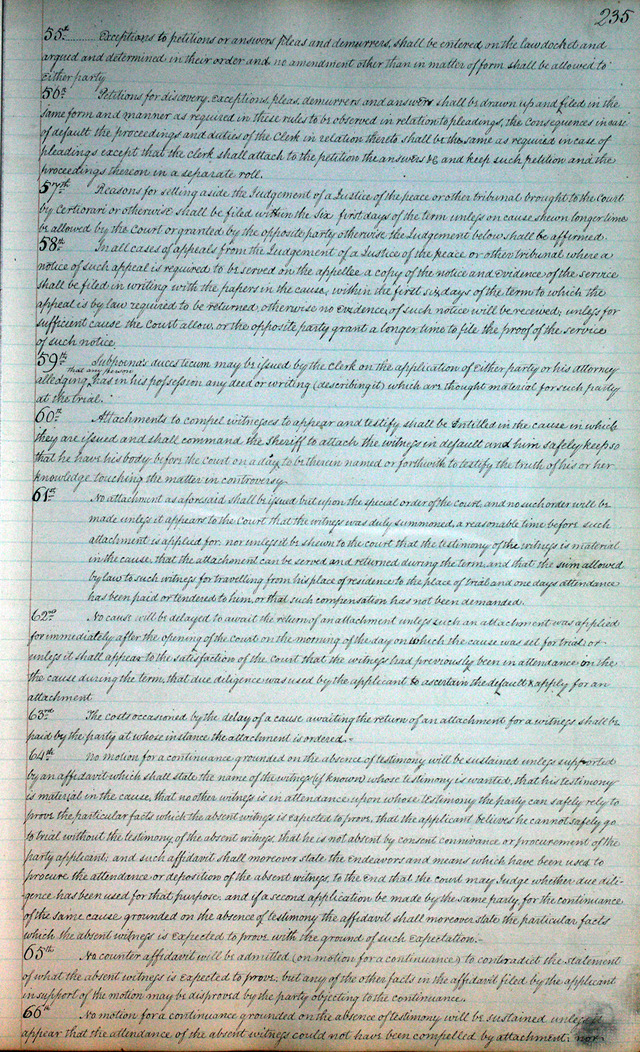 235
55th Exceptions to petitions or answers pleas and demurrers, shall be entered on the law docket and
argued and determined in their order and no amendment other than in matter of form shall be allowed to
Either party
56th Petitions for discovery, Exceptions, pleas, demurrers and answers shall be drawn up and filed in the
same form and manner as required in these rules to be observed in relation to pleadings, the Consequences in case
of default the proceedings and duties of the Clerk in relation thereto shall be the same as required in case of
pleadings except that the clerk shall attach to the petition the answers &c and keep such petition and the
proceedings thereon in a separate roll.
57th Reasons for setting aside the Judgement of a Justice of the peace or other tribunal brought to the Court
by Certiorari or otherwise shall be filed within the Six first days of the term unless on cause shewn longer time
be allowed by the Court or granted by the opposite party otherwise the Judgement below shall be affirmed.
58th In all cases of appeals from the Judgement of a Justice of the peace or other tribunal where a
notice of such appeal is required to be served on the appellee a copy of the notice and Evidence of the service
shall be filed in writing with the papers in the cause, within the first six days of the term to which the
appeal is by law required to be returned, otherwise no Evidence of such notice will be received, unless for
sufficient cause the Court allow, or the opposite party grant a longer time to file the proof of the service
of such notice.
59th Subpoena's duces tecum may be issued by the Clerk on the application of Either party or his attorney
that any person
alledging has in his possession any deed or writing (describing it) which are thought material for such party
at the trial.
60th Attachments to compel witnesses to appear and testify shall be Entitled in the cause in which
they are issued and shall command the Sheriff to attach the witness in default and him safely keep so
that he have his body before the court on a day to be therein named or forthwith to testify the truth of his or her
knowledge touching the matter in controversy.
61st No attachment as aforesaid shall be issued but upon the special order of the Court, and no such order will be
made unless it appears to the Court that the witness was duly summoned, a reasonable time before such
attachment is applied for, nor unless it be shewn to the court that the testimony of the witness is material
in the cause, that the attachment can be served and returned during the term, and that the sum allowed
by law to such witness for travelling from his place of residence to the place of trial and one days attendance
has been paid or tendered to him, or that such compensation has not been demanded.
62nd No cause will be delayed to await the return of an attachment unless such an attachment was applied
for immediately after the opening of the court on the morning of the day on which the cause was set for trial; or
unless it shall appear to the satisfaction of the Court that the witness had previously been in attendance on the
the cause during the term, that due diligence was used by the applicant to ascertain the default & apply for an
attachment
63rd The costs occasioned by the delay of a cause awaiting the return of an attachment for a witness shall be
paid by the party at whose instance the attachment is ordered.-
64th No motion for a continuance grounded on the absence of testimony will be sustained unless supported
by an affidavit which shall state the name of the witness (if known) whose testimony is wanted, that his testimony
is material in the cause, that no other witness is in attendance upon whose testimony the party can safely rely to
prove the particular facts which the absent witness is Expected to prove, that the applicant believes he cannot safely go
to trial without the testimony of the absent witness, that he is not absent by consent connivance or procurement of the
party applicant; and such affidavit shall moreover state the Endeavors and means which have been used to
procure the attendance or deposition of the absent witness, to the End that the court may Judge whether due dili-
gence has been used for that purpose, and if a second application be made by the same party for the continuance
of the same cause grounded on the absence of testimony the affidavit shall moreover state the particular facts
which the absent witness is Expected to prove with the ground of such Expectation.-
65th No counter affidavit will be admitted (on motion for a continuance) to contradict the statement
of what the absent witness is Expected to prove; but any of the other facts in the affidavit filed by the applicant
in support of the motion may be disproved by the party objecting to the continuance.
66th No motion for a continuance grounded on the absence of testimony will be sustained unless it
appear that the attendance of the absent witness could not have been compelled by attachment; nor